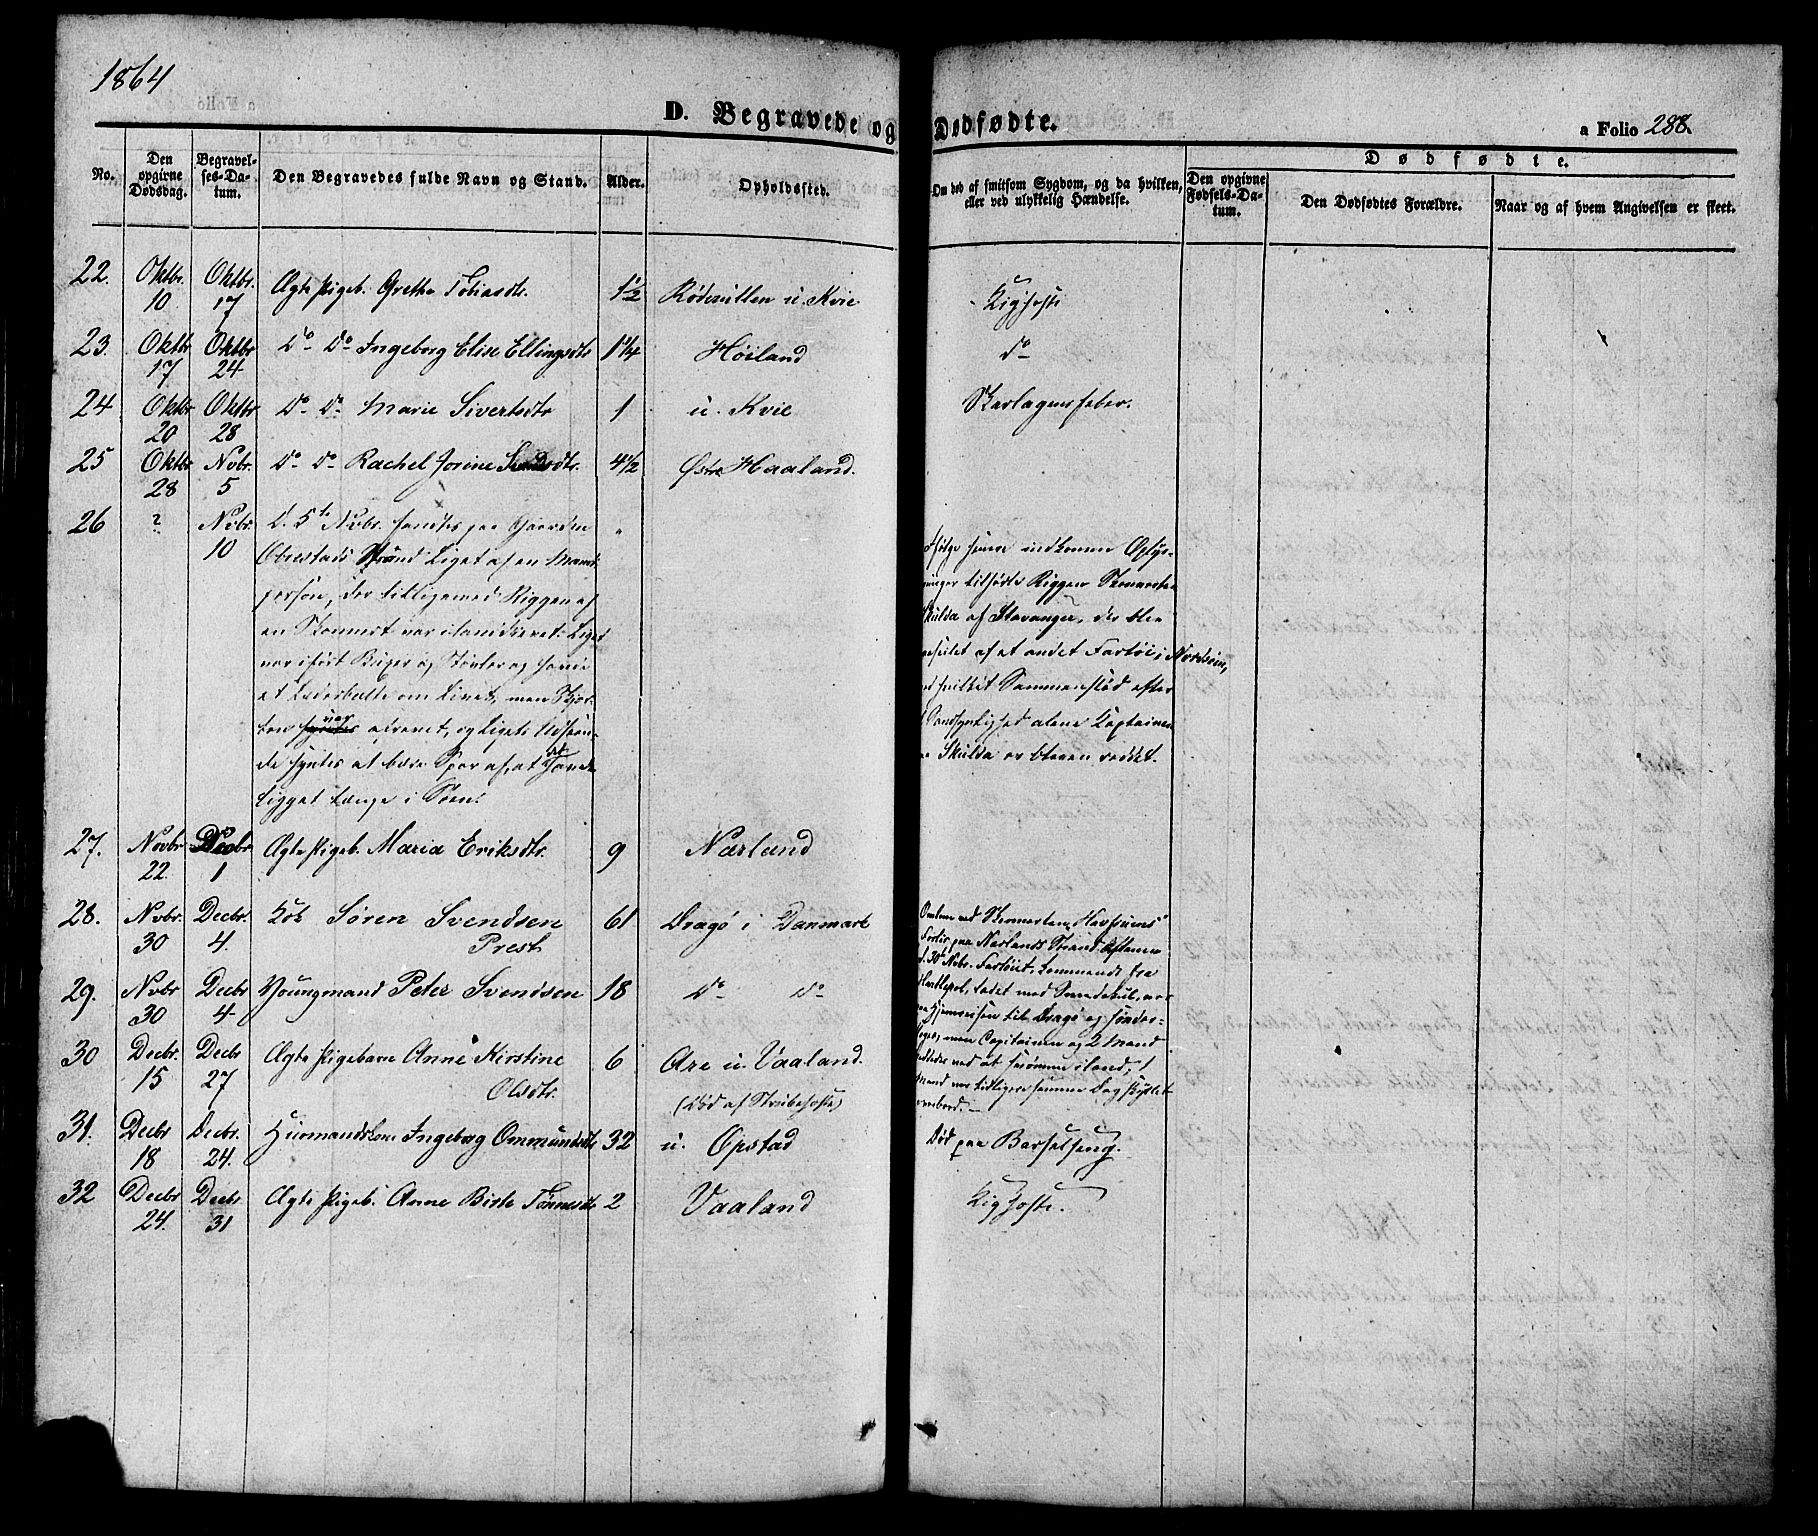 1864
D. Begravede og Dødfødte.
a Folio 288.
No.
Den opgivne Dødsdag.
Begravelses-Datum.
Den Begravedes fulde Navn og Stand.
Alder.
Opholdssted.
Om død af smitsom Sygdom, og da hvilken, eller ved ulykkelig Hændelse.
Dødfødte.
Den opgivne Fødsels-Datum.
Den Dødfødtes Forældre.
Naar og af hvem Angivelsen er skeet.
22. Oktbr. 10 Oktbr. 17 Ægte Pigeb. Grethe Tobiasdtr. 1½ Rødmillen u. Kvie Kighoste
23. Oktbr 17 Oktbr 24 Do Do Ingeborg Elise Ellingsdtr 1¼ Höiland do
24 Oktbr 20 Oktbr 28 Do Do Marie Sivertsdtr 1 u. Kvie Skarlagensfeber.
25 Oktbr 28 Novbr. 5 Do Do Rachel Jorine dtr. 4½ Østre Haaland.
26 ? Novbr. 10 D. 5te Novbr. fandtes paa Gaarden
Obrestads Strand Liget af en Mands
person, der tilligemed Riggen af
en Skonnert var ilanddrevet. Liget
var iført Buxer og Støvler og havde
et Læderbælte om Livet, men Skjor-
ten var afrevet, og Ligets Udseen-
de syntes at bære Spor af, at det havde
ligget længe i Søen.
Ifølge senere indkomne Oplys-
ninger tilhørte Riggen Skonnerten
Skulda af Stavanger, der blev
oversejlet af et andet Fartöi i Nordsöen,
ved hvilket Sammenstöd efter
al Sandsynlighed alene Kaptainen
paa Skulda er bleven reddet.
27. Novbr. 22. Decbr 1 Ægte Pigeb. Maria Eriksdtr. 9 Nærland
28. Novbr. 30 Decbr. 4. Kok Søren Svendsen Prest 61 Dragø i Danmark
29. Novbr 30 Decbr 4 Youngmand Peter Svendsen 18 do do
Omkom ved Skonnerten "Havfruens"
Forliis paa Nærlands Strand Aftenen
d. 30te Novbr. Fartöiet, kommende fra
Hartlepol, ladet med Smedekul, var
paa Hjemreisen til Dragø og sönder-
sloges, men Capitainen og 2 Mand
reddede ved at svömme iland, 1
Mand var tidligere samme Dag skyllet
overbord.
30 Decbr. 15 Decbr 27 Ægte Pigebarn Anne Kirstine Olsdtr. 6 Are u. Vaaland. (Död af Strubehoste)
31. Decbr 18 Decbr. 24. Huusmandskone Ingeborg Ommundsdtr 32 u. Opstad Död paa Barselseng.
32 Decbr 24. Decbr 31 Ægte Pigeb. Anne Birte Tønnesdtr 2 Vaaland Kighoste.